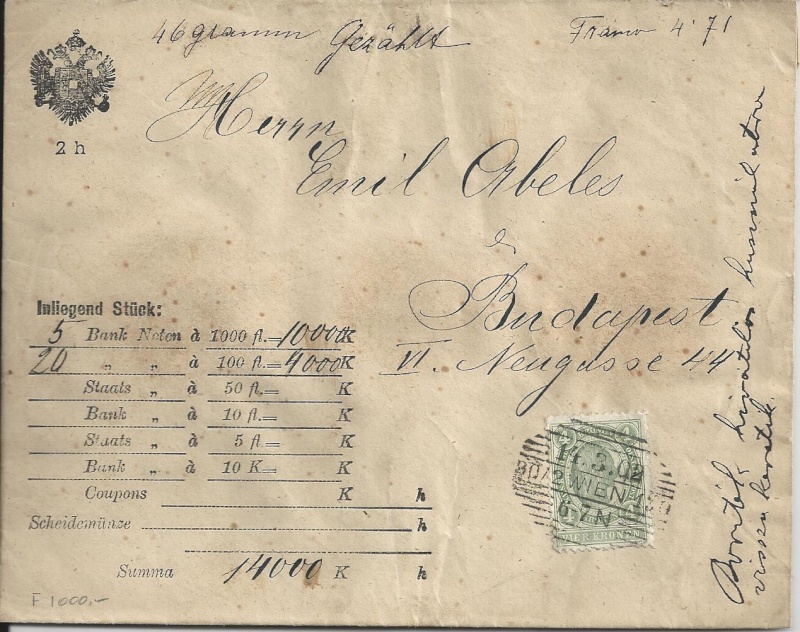 46 gramm Gezählt Franco 4·71
2 h
Herrn
Emil Abeles
Budapest
VI. Neugasse 44
Inliegend Stück:
5 Bank Noten à 1000 fl.= 10000 K
20 „ „ à 100 fl.= 4000 K
Staats „ à 50 fl.= K
Bank „ à 10 fl.= K
Staats „ à 5 fl.= K
Bank „ à 10 K= K
Coupons K h
Scheidemünze h
Summa 14000 K h
F 1000,-
14.3.02
WIEN
6-7N
VIER KRONEN
Boríték hivatalos használatra
vissza kéretik.